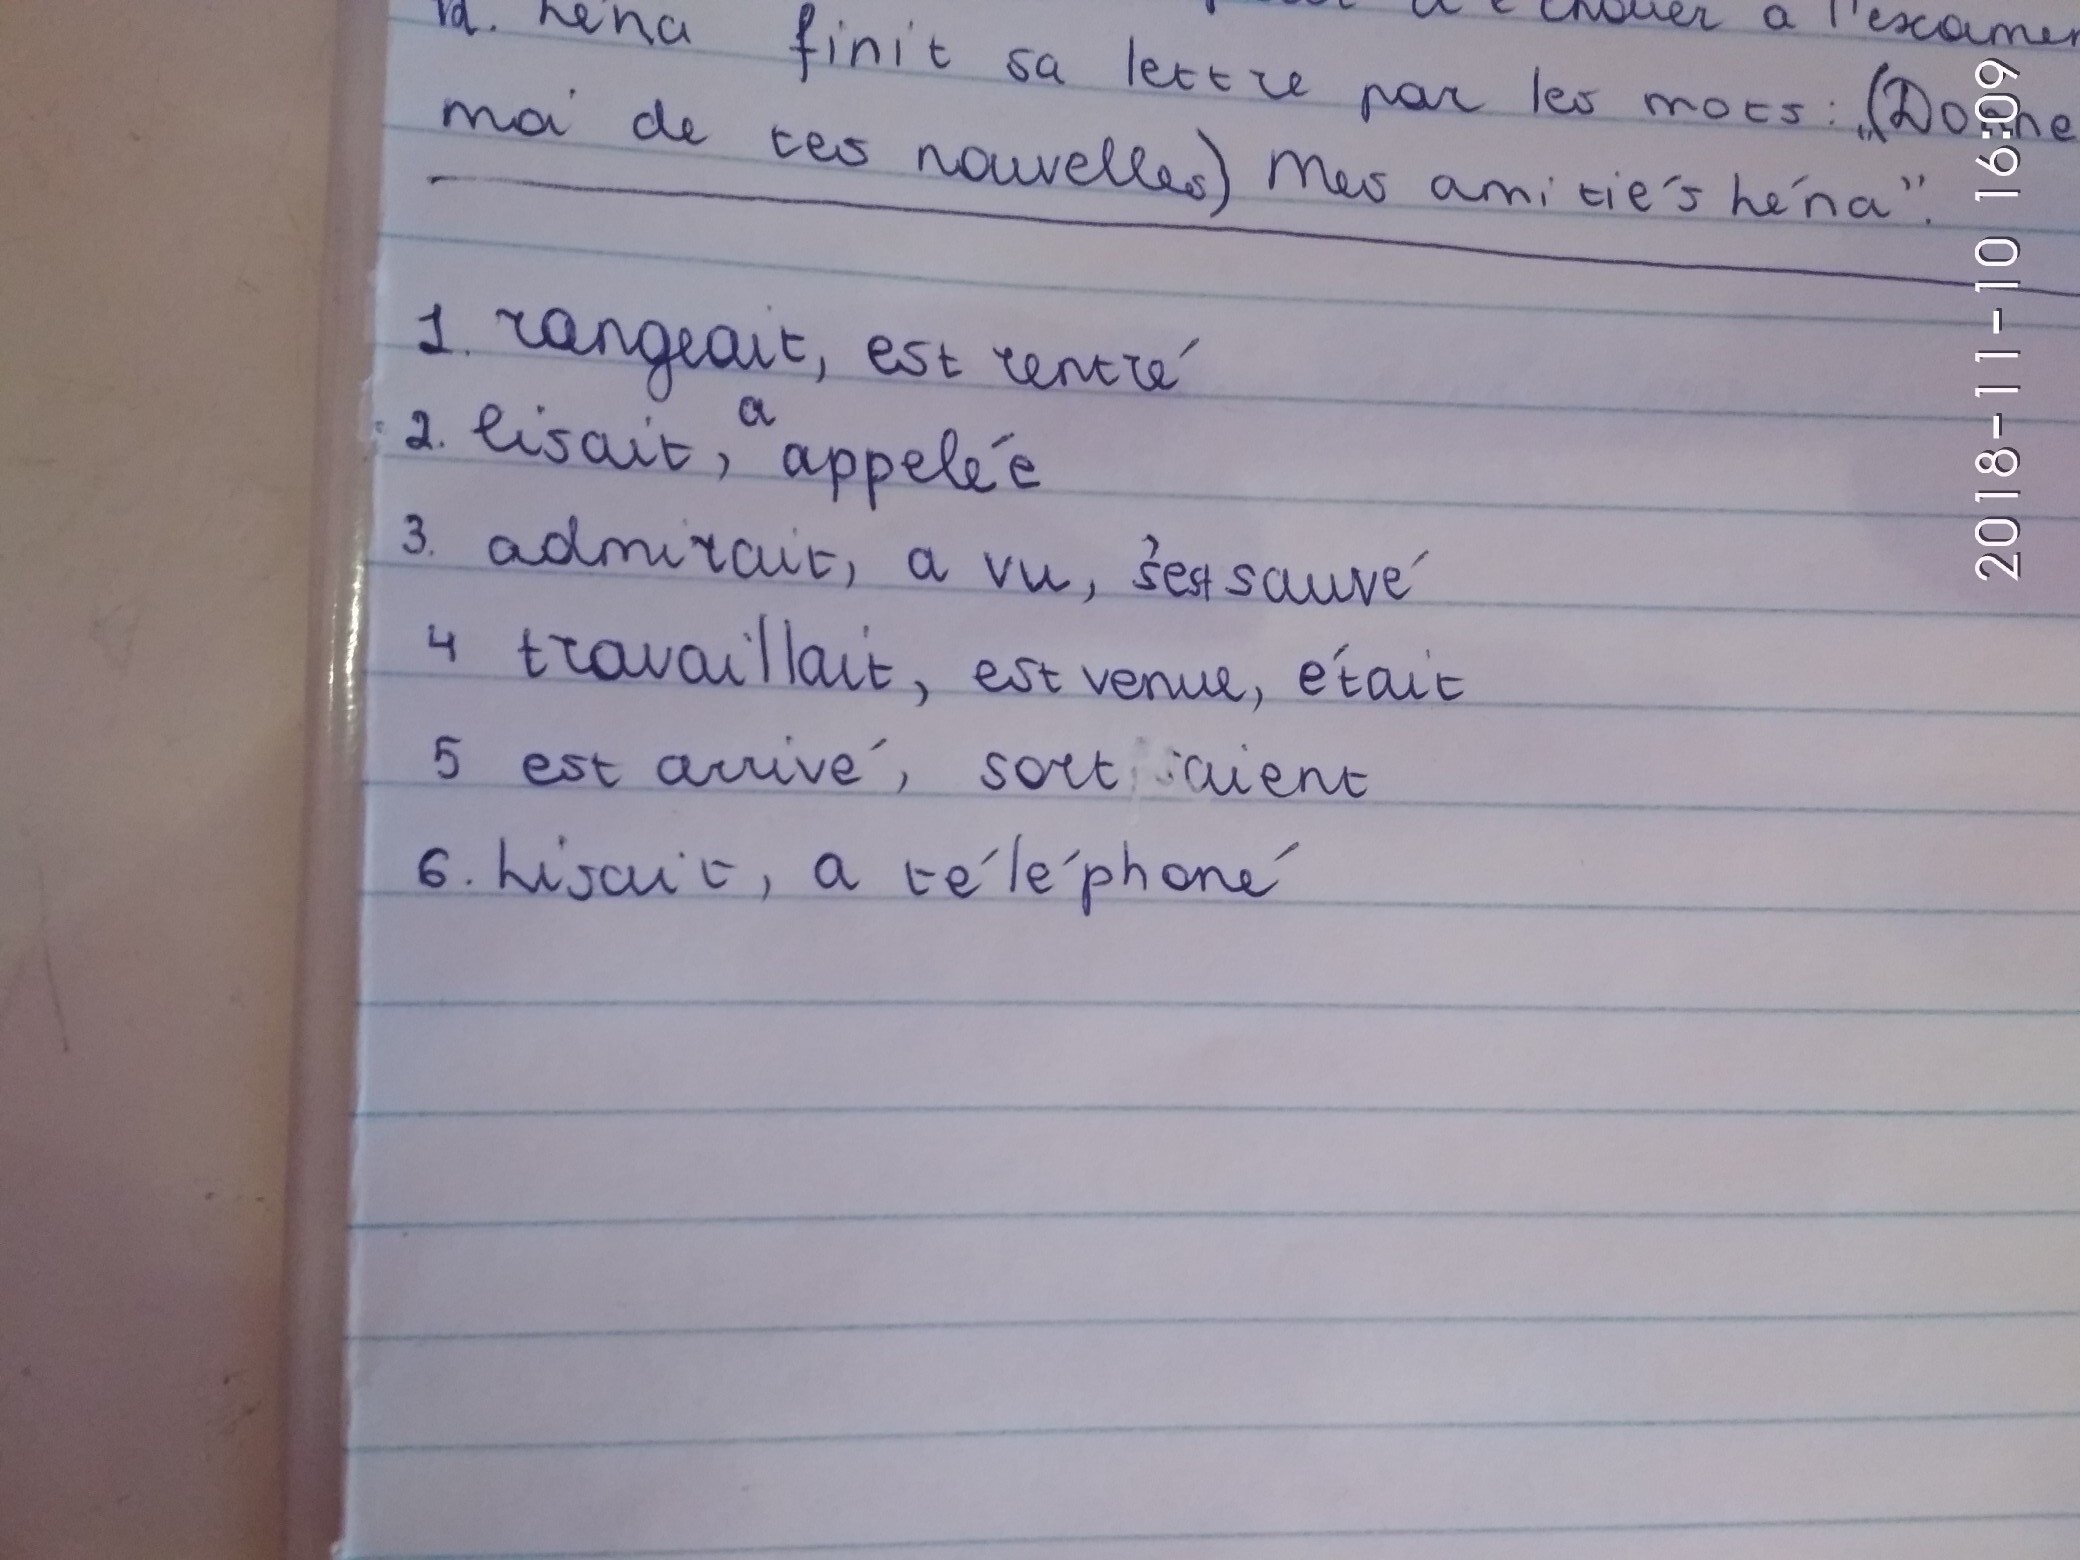 finit sa lettre par les mots: „(Donne
moi de tes nouvelles) Mes amitiés Léna".
1. rangeait, est rentré
2. lisait, a appelée
3. admirait, a vu, s'est sauvé
4 travaillait, est venue, était
5 est arrivé, sort aient
6. Lisait, a téléphoné
2018-11-10 16:09